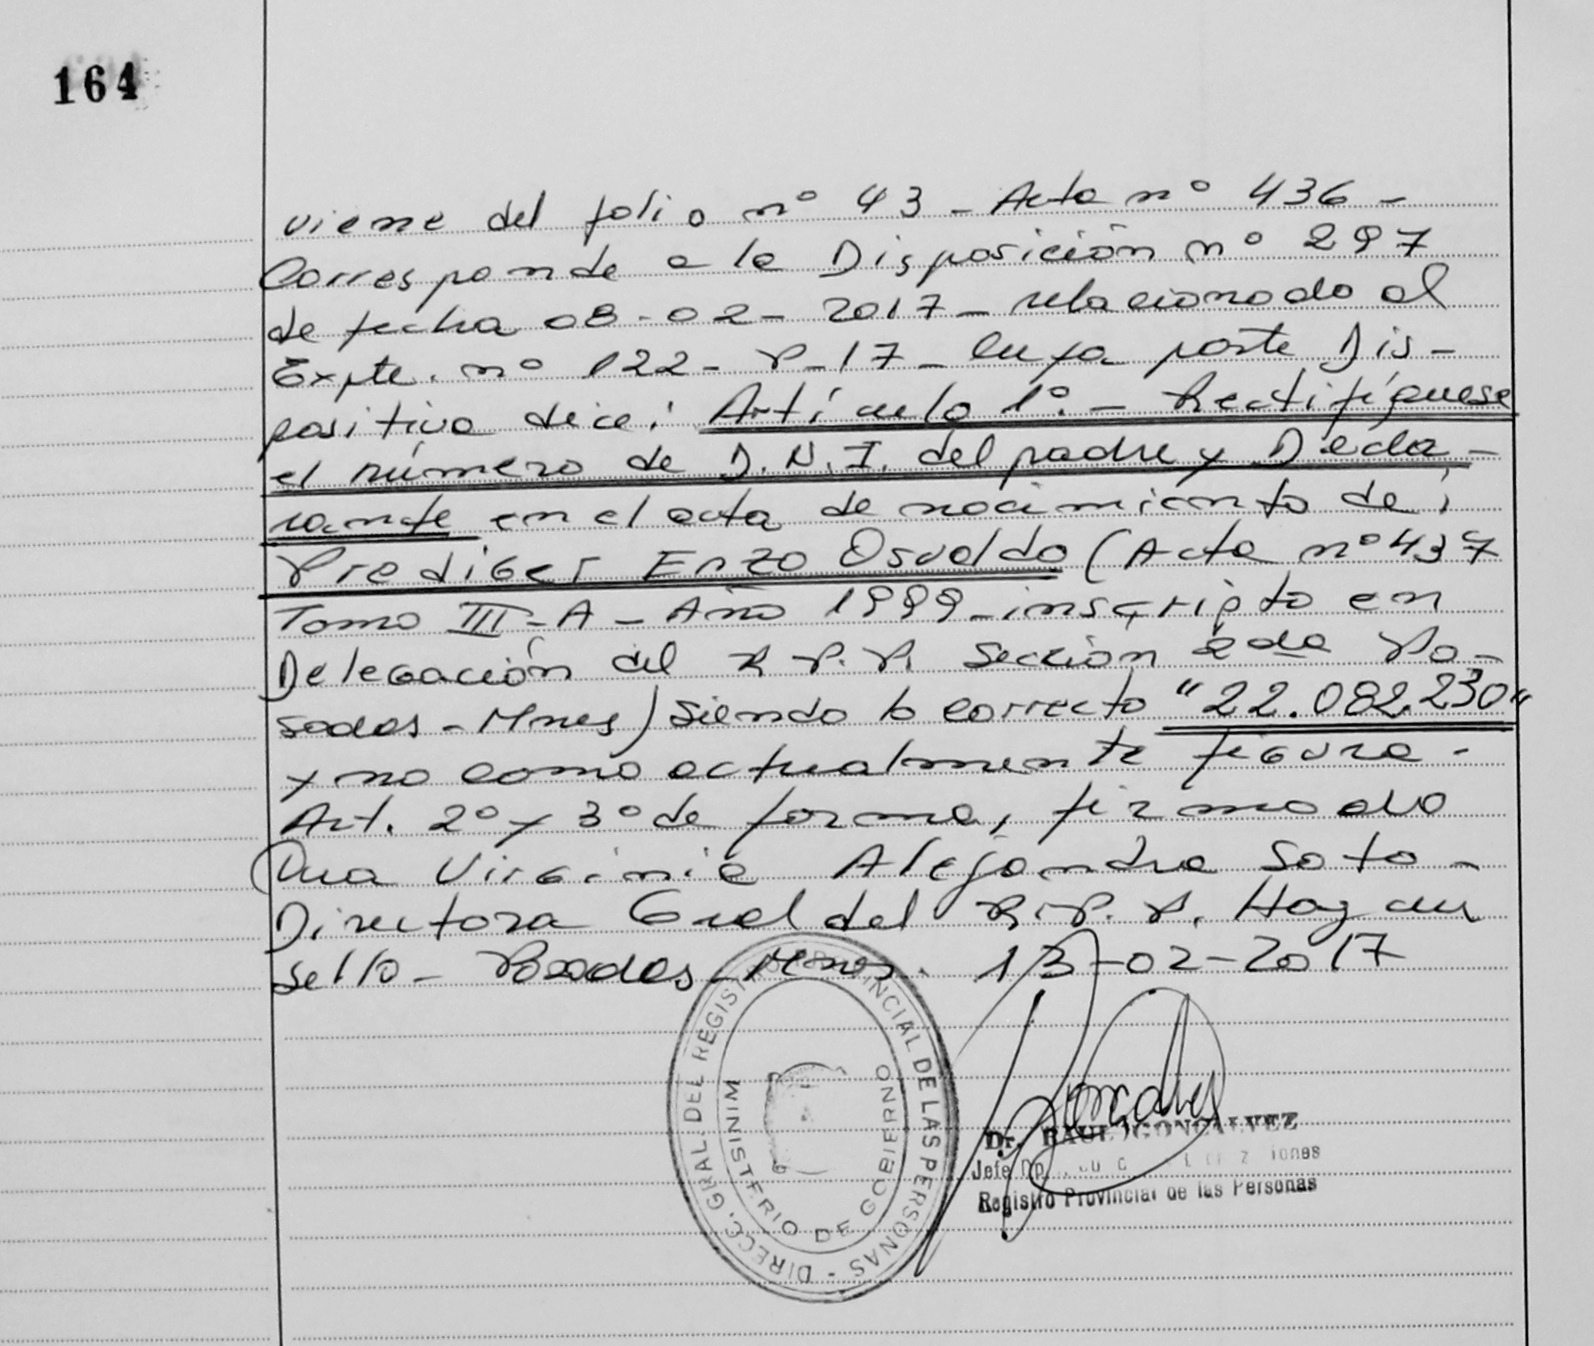 164
viene del folio nº 43 - Acta nº 436 -
Corresponde a la Disposición nº 297
de fecha 08-02-2017 - relacionado al
Expte. nº 122-P-17 - Cuya parte Dis-
positiva dice: Artículo 1º. - Rectifíquese
el número de D.N.I. del padre y Decla-
rante en el acta de nacimiento de:
Prediger Enzo Osvaldo (Acta nº 437
Tomo III-A - Año 1999 - inscripto en
Delegación del R.P.P. Sección 2da Po-
sadas - Mnes) Siendo lo correcto "22.082.230"
y no como actualmente figura.
Art. 2º y 3º de forma, firmado
Dra Virginia Alejandra Soto -
Directora Gral del R.P.P. Hay un
sello - Posadas - Mnes. 13-02-2017
DIRECC. GRAL. DEL REGISTRO PROVINCIAL DE LAS PERSONAS -
MINISTERIO DE GOBIERNO
Dr. RAUL GONCALVEZ
Jefe Dp
Registro Provincial de las Personas